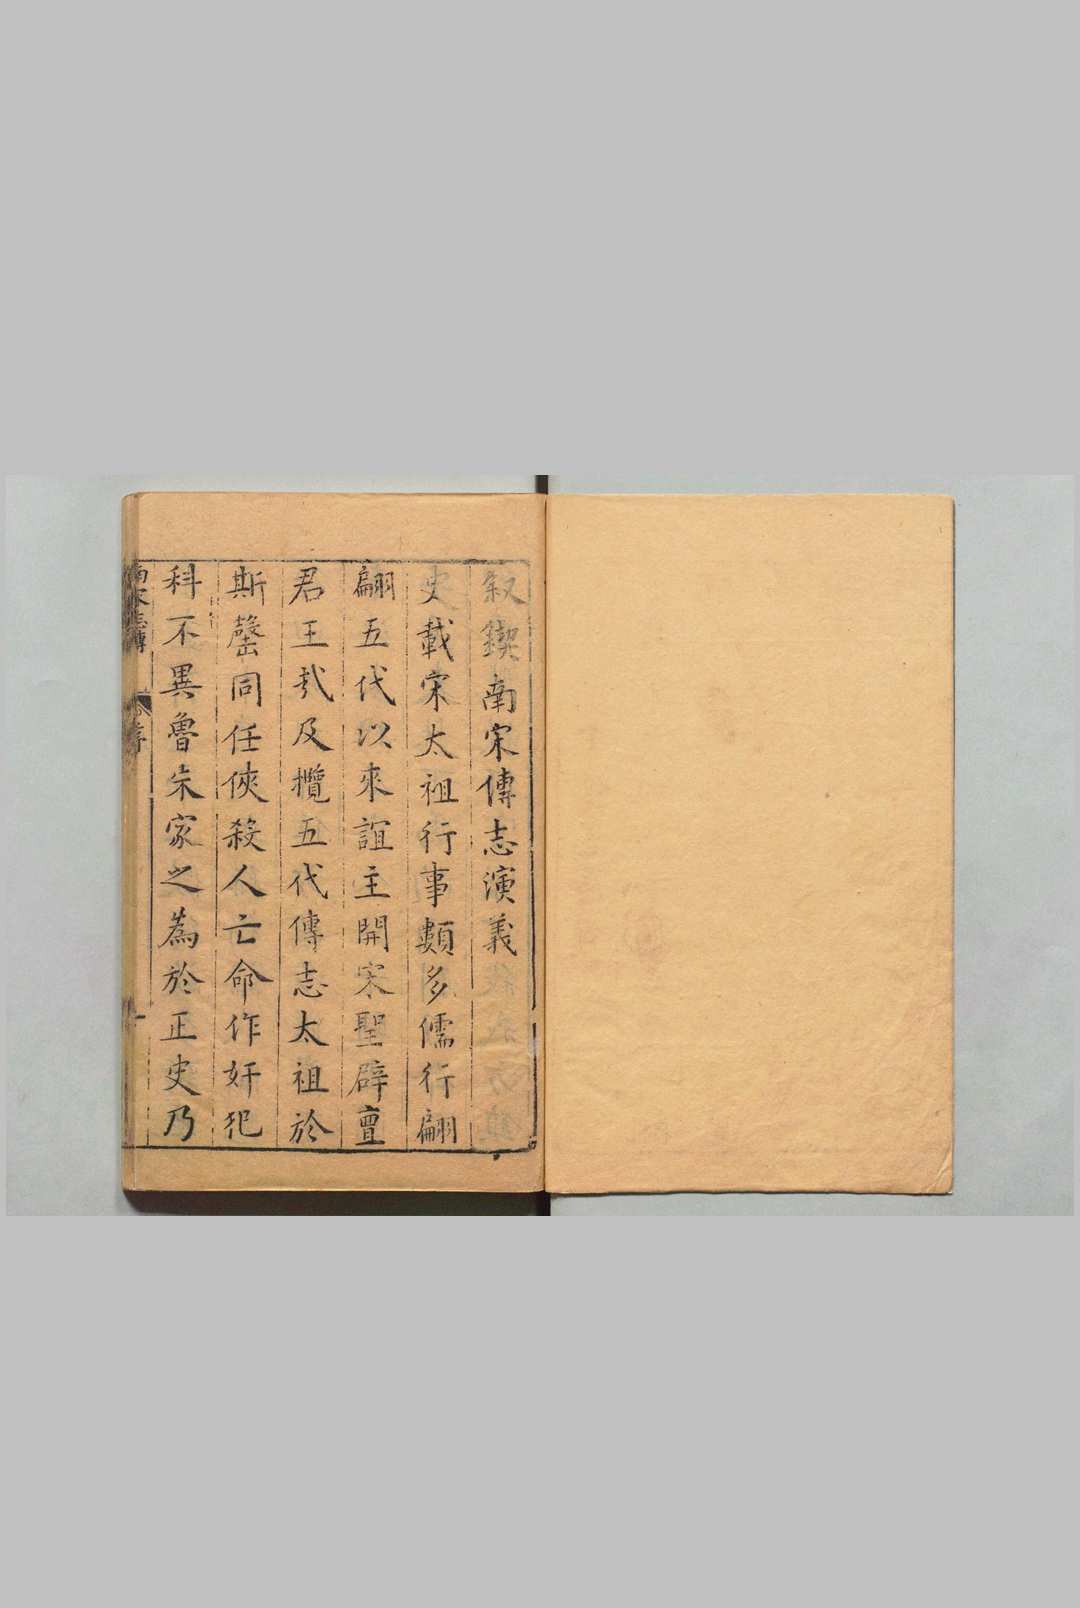 叙鍥南宋傳志演義
史載宋太祖行事類多儒行翩
翩五代以來誼主開宋聖辟亶
君王㢤及攬五代傳志太祖於
斯罄同任俠殺人亡命作奸犯
科不異魯朱家之為於正史乃
南宋志傳 序 一